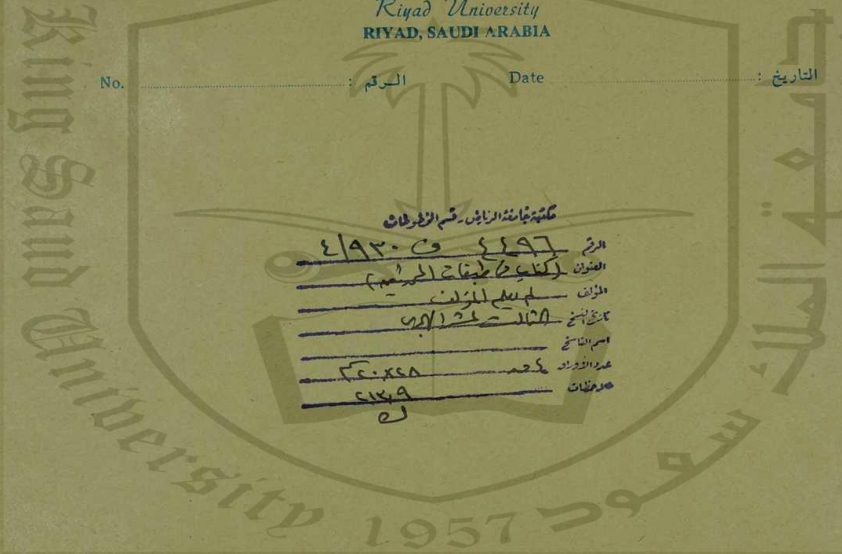 Riyad University
RIYAD, SAUDI ARABIA
No. الرقم : Date التاريخ :
مكتبة جامعة الرياض - قسم المخطوطات
الرقم ٤٤٩٦ ف ٤/٩٣٠
العنوان (كتاب في طبقات
المؤلف لم يعلم المؤلف
تاريخ النسخ الثالث عشر الهجري
اسم الناسخ
عدد الأوراق ٢٠x٢٨ سم
ملاحظات ٢١٣٠٩
ك
King Saud University
جامعة الملك سعود
1957